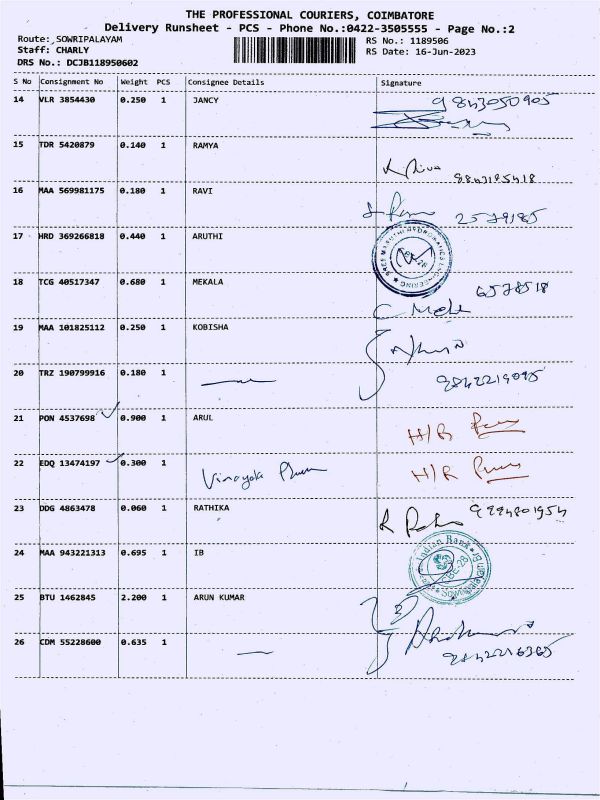 THE PROFESSIONAL COURIERS, COIMBATORE
Delivery Runsheet - PCS - Phone No.:0422-3505555 - Page No.:2
Route: SOWRIPALAYAM RS No.: 1189506
Staff: CHARLY RS Date: 16-Jun-2023
DRS No.: DCJB118950602
S No Consignment No Weight PCS Consignee Details Signature
14 VLR 3854430 0.250 1 JANCY 9843050905
15 TDR 5420879 0.140 1 RAMYA
16 MAA 569981175 0.180 1 RAVI 2579185
17 HRD 369266818 0.440 1 ARUTHI
18 TCG 40517347 0.680 1 MEKALA 6578518
19 MAA 101825112 0.250 1 KOBISHA
20 TRZ 190799916 0.180 1 9842219095
21 PON 4537698 0.900 1 ARUL H/R
22 EDQ 13474197 0.300 1 Vinayaka H/R
23 DDG 4863478 0.060 1 RATHIKA
24 MAA 943221313 0.695 1 IB Indian Bank
25 BTU 1462845 2.200 1 ARUN KUMAR
26 CDM 55228600 0.635 1 9842216365